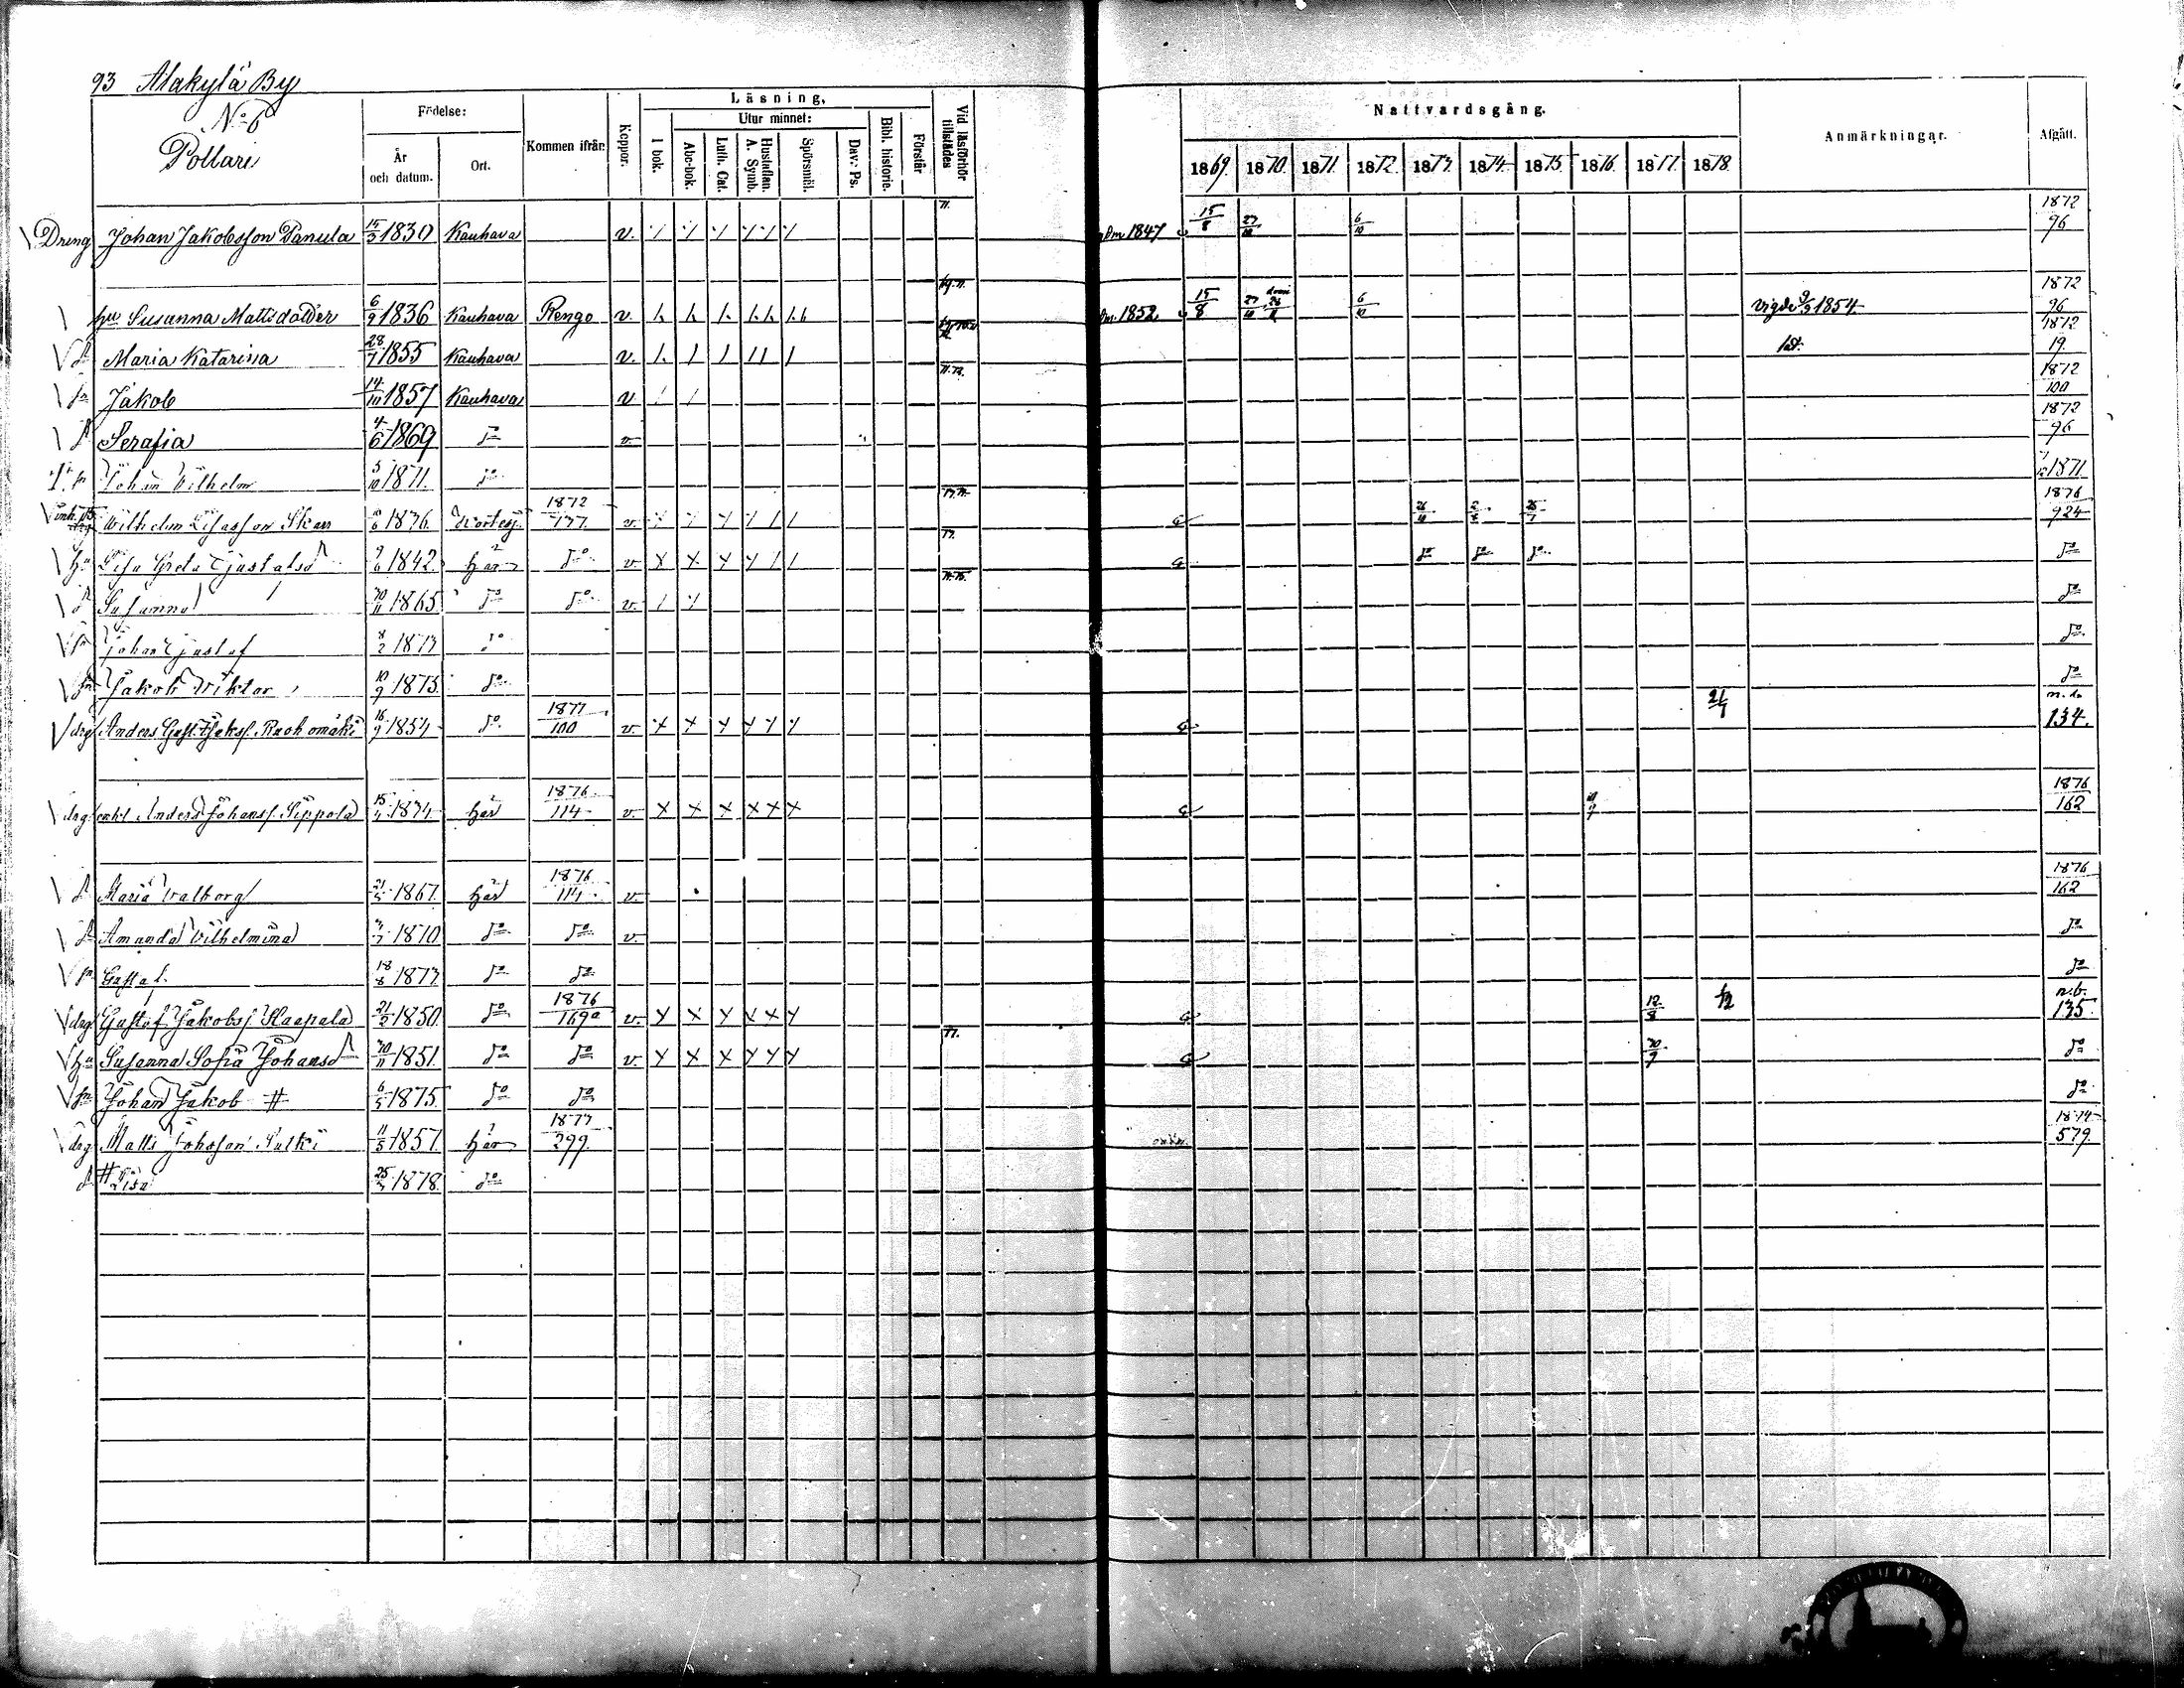 93 Alakylä By
No 6
Pollari
Födelse:
År och datum.
Ort.
Kommen ifrån
Koppor.
Läsning.
I bok.
Utur minnet:
Abc-bok.
Luth. Cat.
Hustaflan. A. Symb.
Spörsmål.
Dav. Ps.
Bibl. historie.
Förstår
Vid läsförhör tillstädes
Nattvardsgång.
1869. 1870. 1871. 1872. 1873. 1874. 1875. 1876. 1877. 1878.
Anmärkningar.
Afgått.
Dreng Johan Jakobsson Panula 15/3 1830 Kauhava v. 1847 15/8 27/10 6/10 1872 96
hu Susanna Mattsdotter 6/9 1836 Kauhava Rengo v. 1852 15/8 27/10 6/10 vigde 1854 1872 96
d Maria Katarina 28/7 1855 Kauhava v. 1872 19.
sn Jakob 14/10 1857 Kauhava v 1872 100
d Serafia 4/6 1869 do v 1872 96
sn Johan Wilhelm 5/10 1871. do 1871
Wilhelm 1836. 1872 137. v. 1876 924
hu Lisa Greta Gustafsd 1842 här do v do do do do
d Susanna 30/11 1865 do do v. do
sn Johan Gustaf 8/2 1873 do do
sn Jakob Viktor 10/9 1875. do do
drg Anders Gust. Jaks. Ruohomäki 16/9 1854 do 1877 100 v. 21/7 134.
drg enkl. Anders Johans. Sippola 15/4 1834 här 1876 114 v. 1876 162
d Maria Valborg 21/5 1867. här 1876 114 v. 1876 162
d Amanda Vilhelmina 1870 do do v. do
sn Gustaf 18/8 1873 do do do
drg Gustaf Jakobs. Haapala 21/2 1850. do 1876 169a v. 12/8 n.b. 135
hu Susanna Sofia Johansd 30/11 1851. do do v. 30/9 do
sn Johan Jakob # 6/5 1875. do do do
drg Matts Johansson 11/5 1857. här 1877 299. 579.
d # Lisa 1878. do